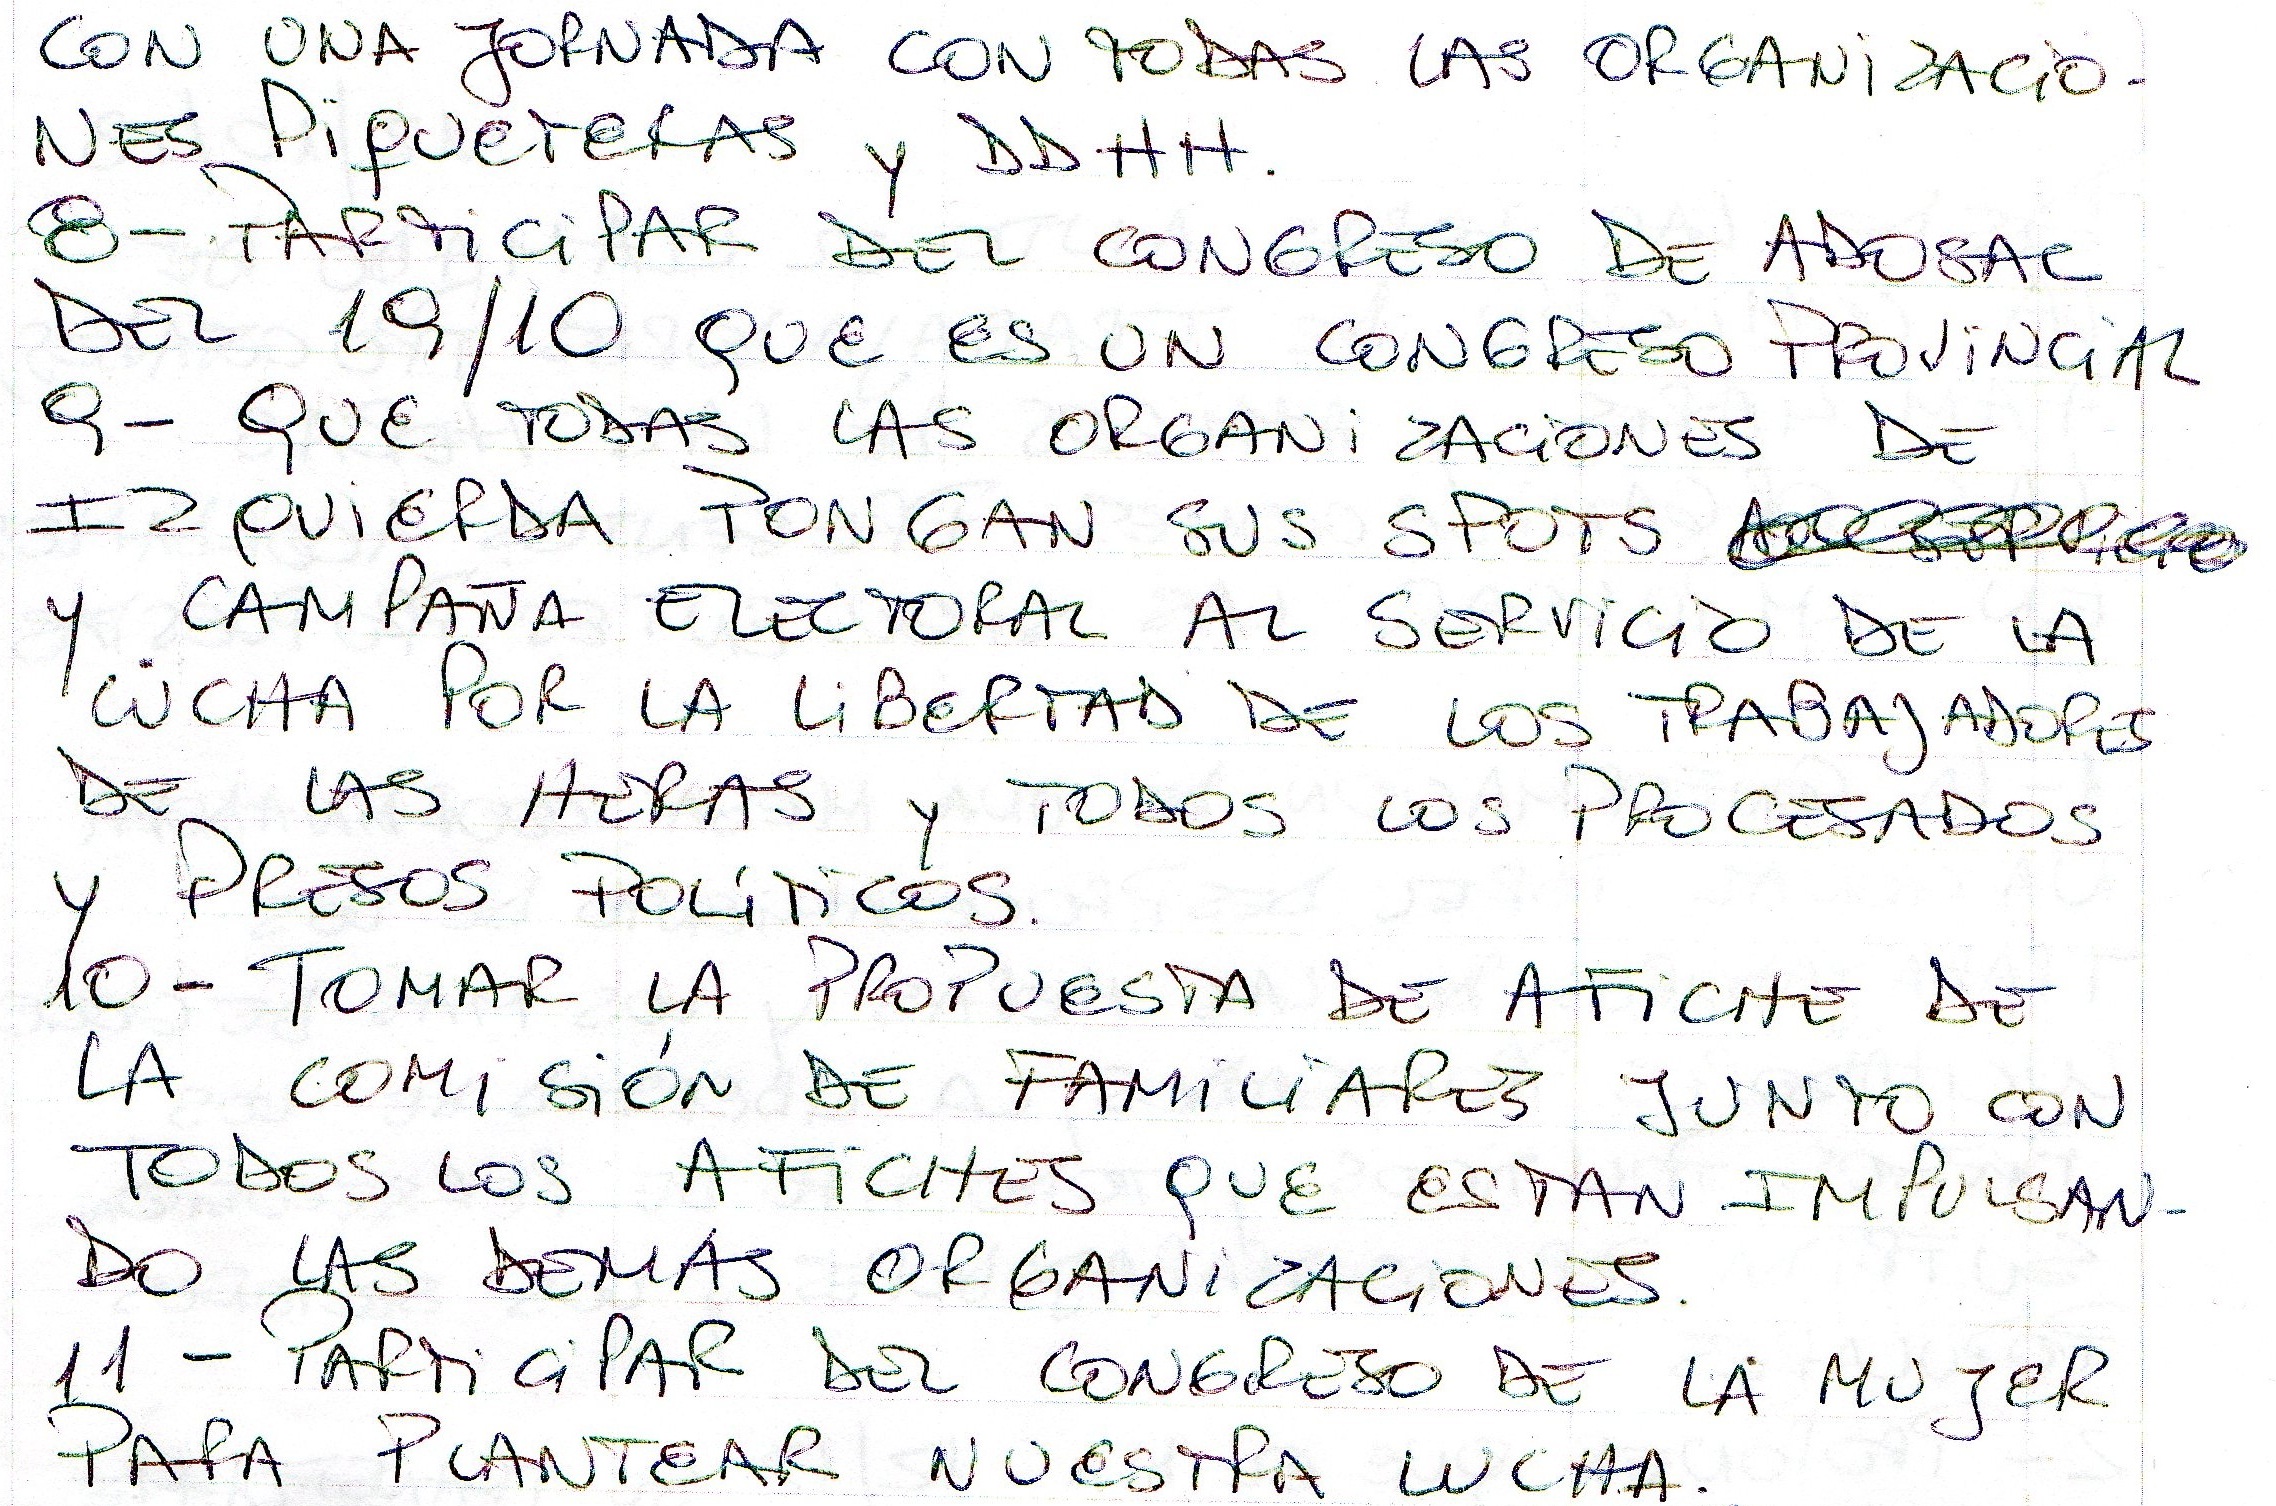 CON UNA JORNADA CON TODAS LAS ORGANIZACIO-
NES PIQUETERAS Y DDHH.
8- PARTICIPAR DEL CONGRESO DE ADOSAC
DEL 19/10 QUE ES UN CONGRESO PROVINCIAL
9- QUE TODAS LAS ORGANIZACIONES DE
IZQUIERDA PONGAN SUS SPOTS
Y CAMPAÑA ELECTORAL AL SERVICIO DE LA
LUCHA POR LA LIBERTAD DE LOS TRABAJADORES
DE LAS HERAS Y TODOS LOS PROCESADOS
Y PRESOS POLÍTICOS.
10- TOMAR LA PROPUESTA DE AFICHE DE
LA COMISIÓN DE FAMILIARES JUNTO CON
TODOS LOS AFICHES QUE ESTAN IMPULSAN-
DO LAS DEMÁS ORGANIZACIONES.
11- PARTICIPAR DEL CONGRESO DE LA MUJER
PARA PLANTEAR NUESTRA LUCHA.